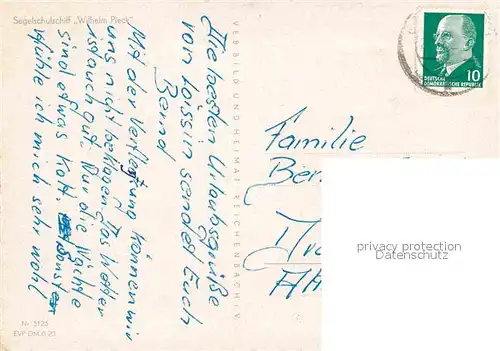 Segelschulschiff „Wilhelm Pieck"
Die besten Urlaubsgrüße
von loissin sendet Euch
Bernd
Mit der Verflegung können wir
uns nicht beklagen. Das Wetter
ist auch gut. Nur die Nächte
sind etwas kalt. sonst
fühle ich mich sehr wohl
Nr. 5126
EVP DM 0.20
VEB BILD UND HEIMAT REICHENBACH I. V.
10
DEUTSCHE
DEMOKRATISCHE REPUBLIK
Familie
Ber
privacy protection
Datenschutz